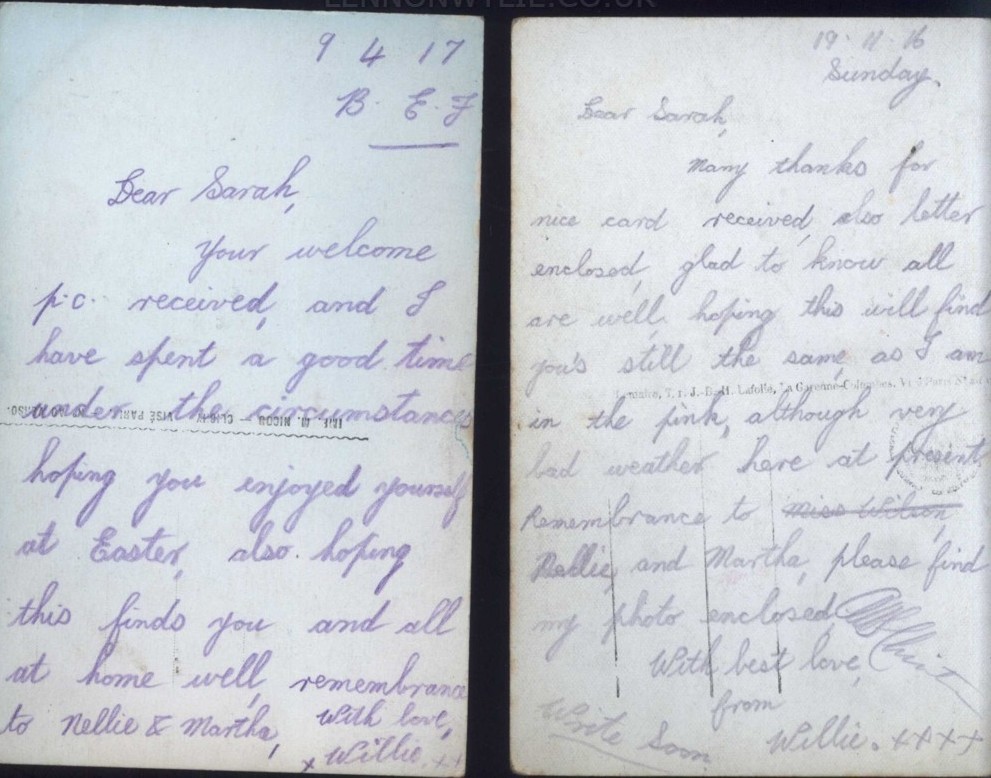 LENNONWYLIE.CO.UK
9 4 17
B. E. F
Dear Sarah,
Your welcome
p.c. received, and I
have spent a good time
under the circumstances
hoping you enjoyed yourself
at Easter, also hoping
this finds you and all
at home well, remembrance
to Nellie & Martha,
With love,
x Willie. xx
19. 11. 16
Sunday.
Dear Sarah,
Many thanks for
nice card received, also letter
enclosed, glad to know all
are well. hoping this will find
you's still the same, as I am
in the pink, although very
bad weather here at present.
Remembrance to Miss Wilson,
Nellie, and Martha, please find
my photo enclosed
With best love,
from
Willie. xxxx
Write Soon